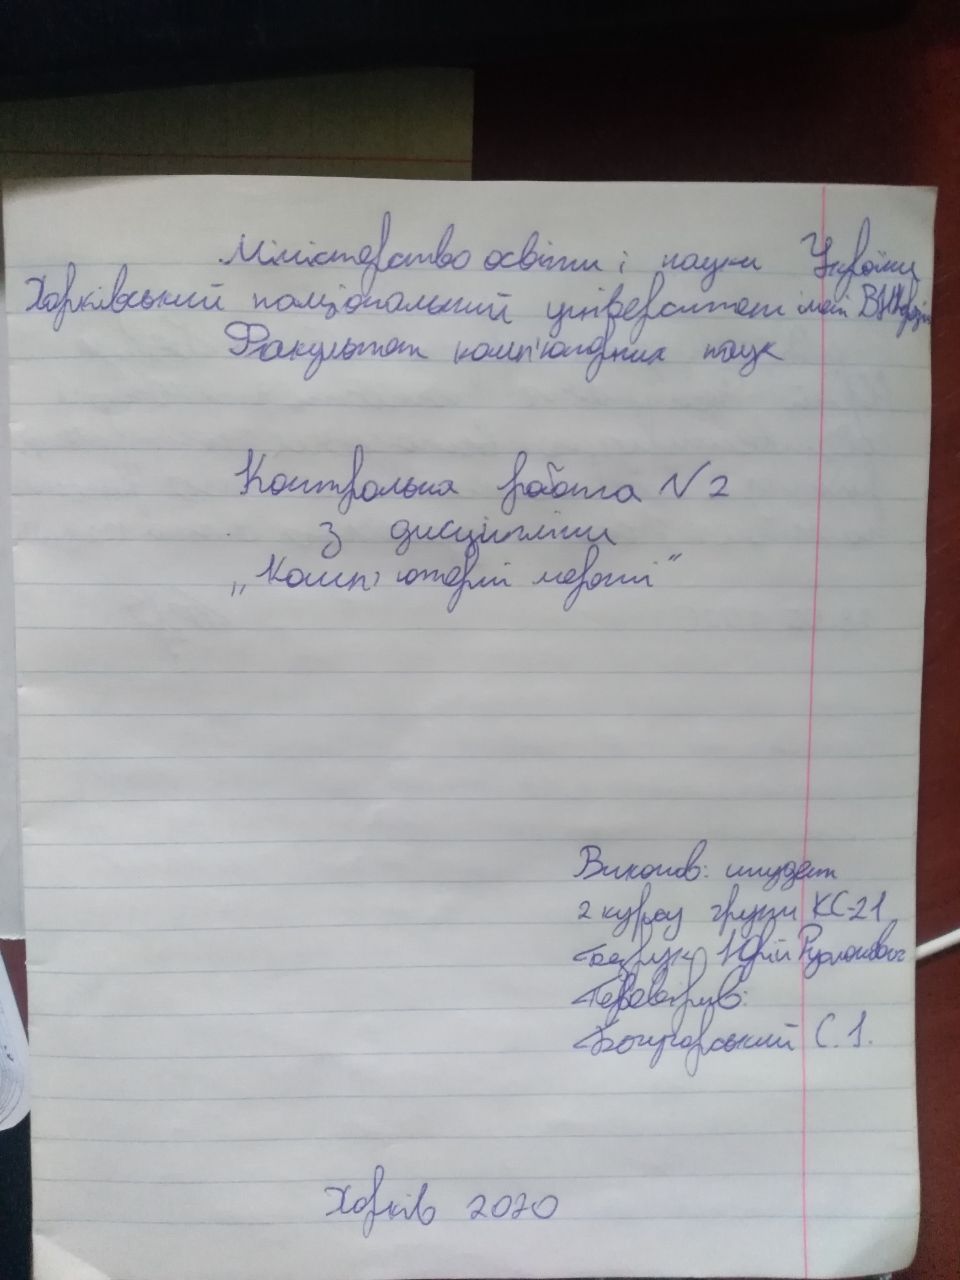 Міністерство освіти і науки України
Харківський національний університет імені В.Н.
Факультет комп'ютерних наук
Контрольна работа N 2
з дисципліни
„Комп'ютерні мережі"
Виконав: студент
2 курсу групи КС-21
Юрій Русланович
Перевірив:
С. І.
Харків 2020